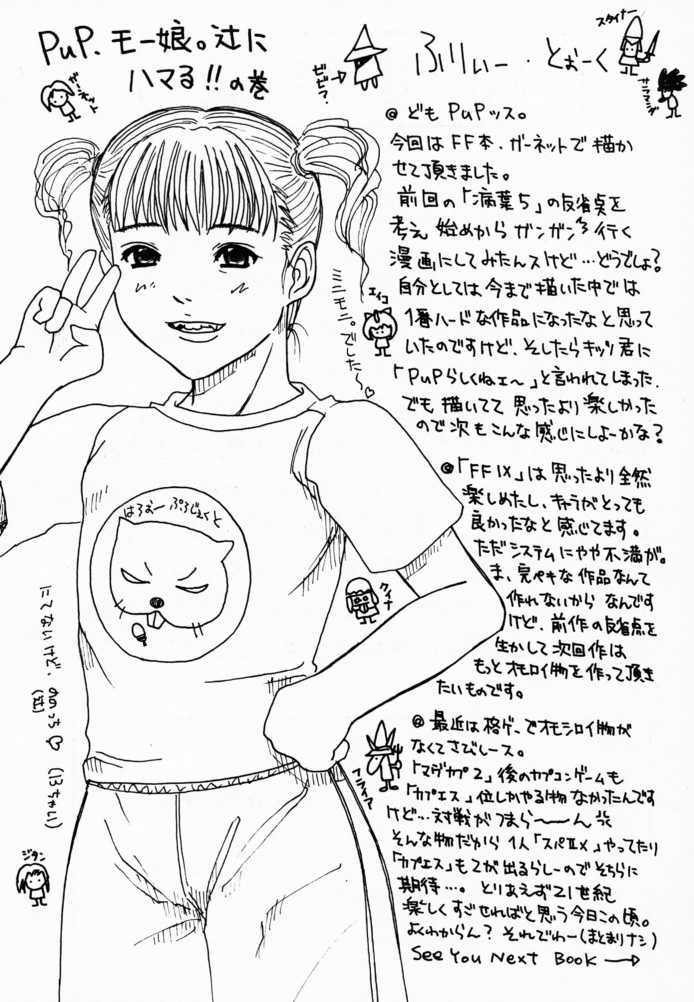 PuP.モー娘。辻に
ハマる!!の巻
ふりぃー・とぉーく
スタイナー
サラマンダ
ビビ?
ガーネット
@ どもPuPッス。
今回はFF本.ガーネットで描か
せて頂きました。
前回の「病葉5」の反省点を
考え始めからガンガン行く
漫画にしてみたんスけど…どうでしょ?
自分としては今まで描いた中では
1番ハードな作品になったなと思って
いたのですけど、そしたらキッソ君に
「PuPらしくねェ〜」と言われてしまった.
でも描いてて思ったより楽しかった
ので次もこんな感じにしよーかな?
エイコ
ミニモニ。でした〜♡
@「FFIX」は思ったより全然
楽しめたし、キャラがとっても
良かったなと感じてます。
ただシステムにやや不満が。
ま、完ペキな作品なんて
作れないからなんです
けど、前作の反省点を
生かして次回作は
もっとオモロイ物を作って頂き
たいものです。
クイナ
はろおーぷろじぇくと
にてないけど.ののっち♡(13ちゃい)
(辻)
@ 最近は格ゲーでオモシロイ物が
なくてさびしース。
「マヴカプ2」後のカプコンゲームも
「カプエス」位しかやる物なかったんです
けど…対戦がつまら〜〜ん
そんな物だから1人「スパIIX」やってたり
「カプエス」も2が出るらしーのでそちらに
期待…。とりあえず21世紀
楽しくすごせればと思う今日この頃。
よくわからん?それでわー(まとまりナシ)
See You Next Book →
フライア
ジタン